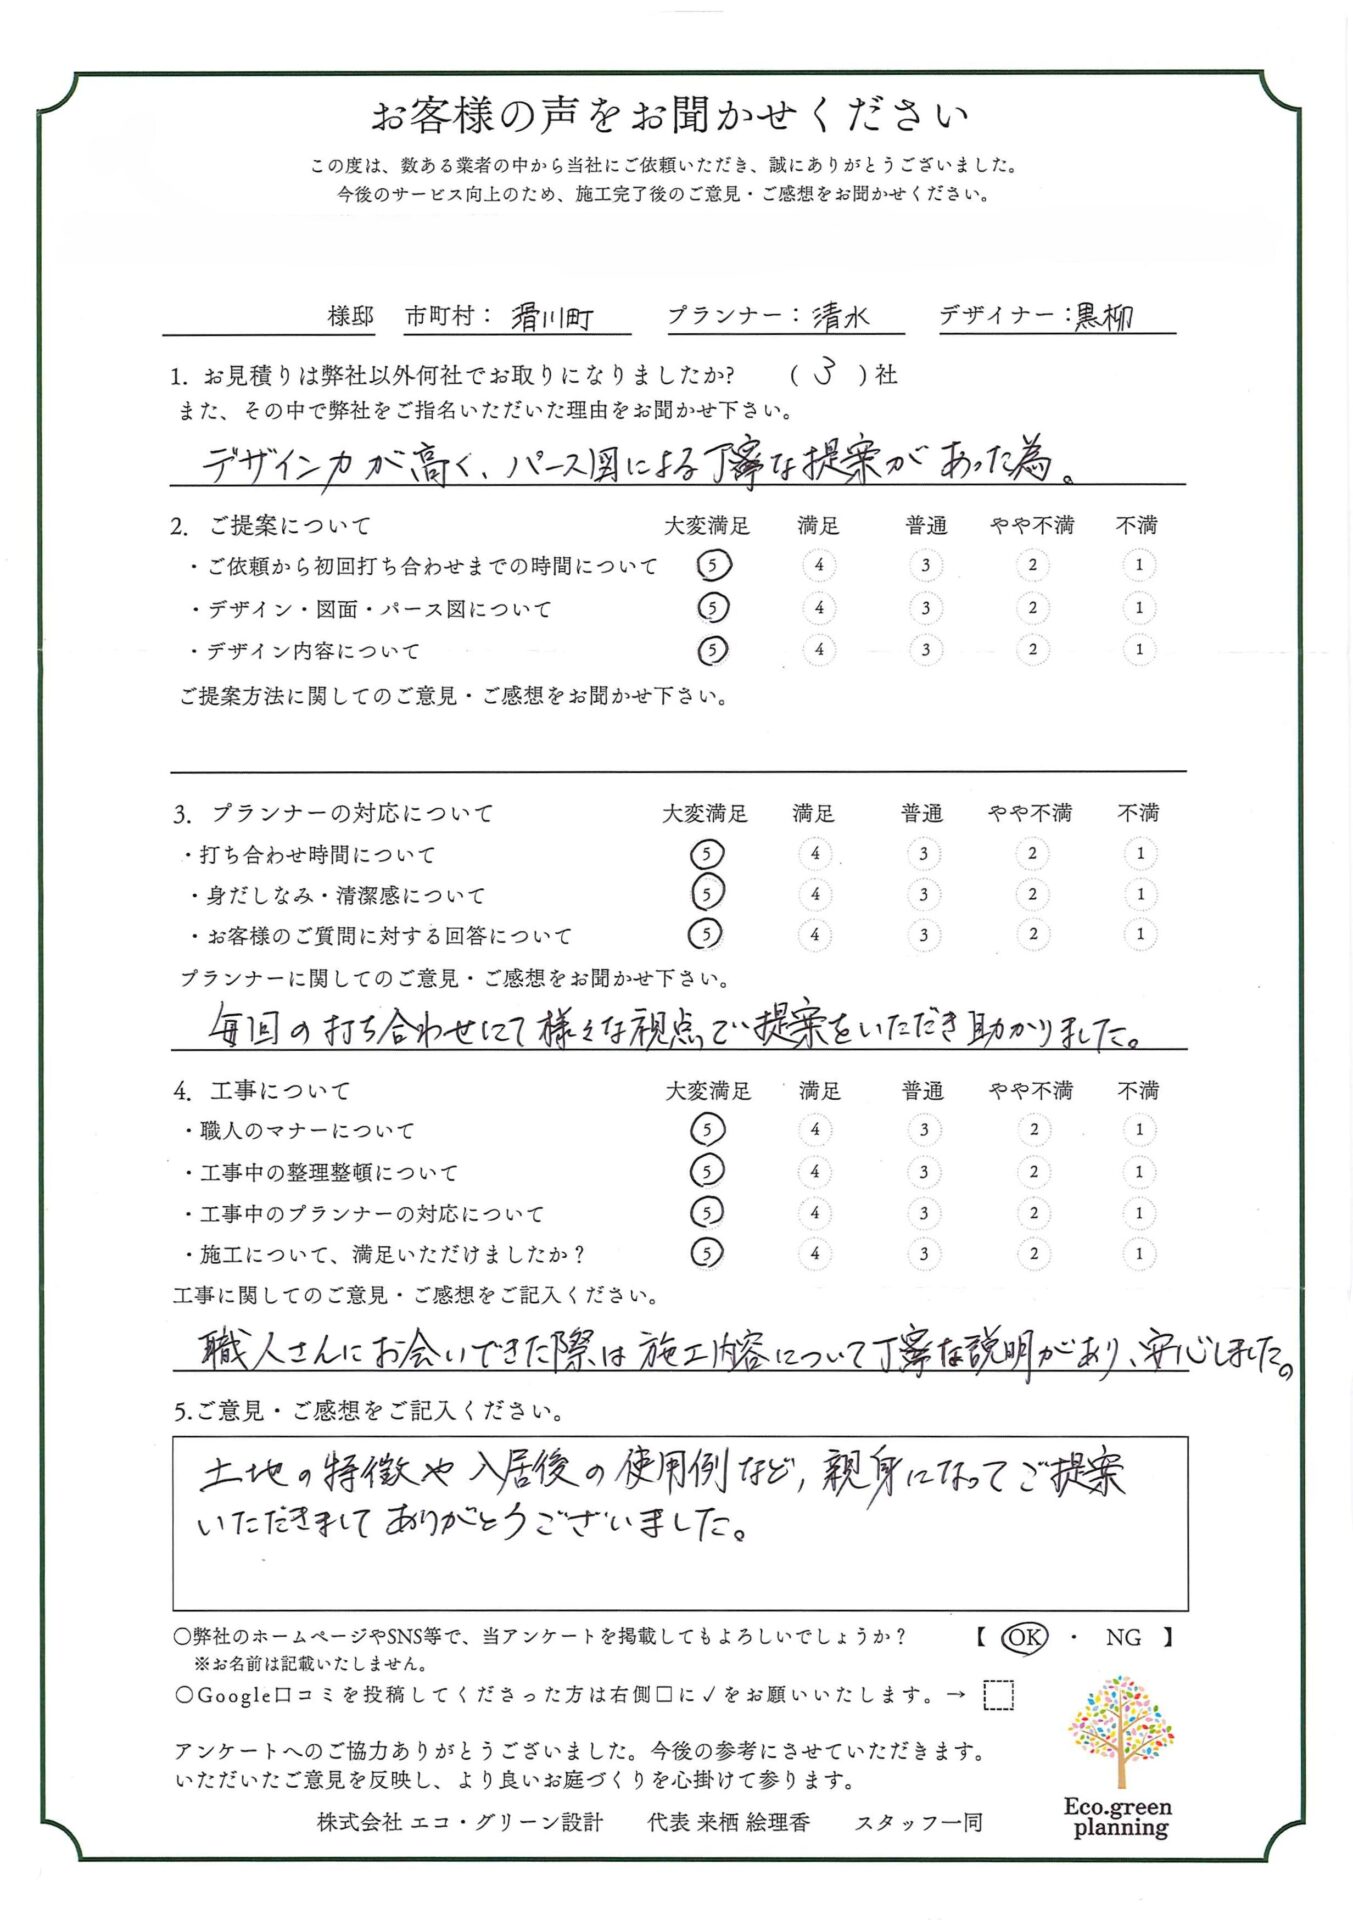 お客様の声をお聞かせください
この度は、数ある業者の中から当社にご依頼いただき、誠にありがとうございました。
今後のサービス向上のため、施工完了後のご意見・ご感想をお聞かせください。
様邸 市町村： 滑川町 プランナー： 清水 デザイナー：黒柳
1. お見積りは弊社以外何社でお取りになりましたか? ( 3 ) 社
また、その中で弊社をご指名いただいた理由をお聞かせ下さい。
デザイン力が高く、パース図による丁寧な提案があった為。
2. ご提案について 大変満足 満足 普通 やや不満 不満
・ご依頼から初回打ち合わせまでの時間について 5 4 3 2 1
・デザイン・図面・パース図について 5 4 3 2 1
・デザイン内容について 5 4 3 2 1
ご提案方法に関してのご意見・ご感想をお聞かせ下さい。
3. プランナーの対応について 大変満足 満足 普通 やや不満 不満
・打ち合わせ時間について 5 4 3 2 1
・身だしなみ・清潔感について 5 4 3 2 1
・お客様のご質問に対する回答について 5 4 3 2 1
プランナーに関してのご意見・ご感想をお聞かせ下さい。
毎回の打ち合わせにて様々な視点でご提案をいただき助かりました。
4. 工事について 大変満足 満足 普通 やや不満 不満
・職人のマナーについて 5 4 3 2 1
・工事中の整理整頓について 5 4 3 2 1
・工事中のプランナーの対応について 5 4 3 2 1
・施工について、満足いただけましたか？ 5 4 3 2 1
工事に関してのご意見・ご感想をご記入ください。
職人さんにお会いできた際は施工内容について丁寧な説明があり、安心しました。
5.ご意見・ご感想をご記入ください。
土地の特徴や入居後の使用例など，親身になってご提案
いただきましてありがとうございました。
〇弊社のホームページやSNS等で、当アンケートを掲載してもよろしいでしょうか？ 【 OK ・ NG 】
※お名前は記載いたしません。
〇Google口コミを投稿してくださった方は右側□に✓をお願いいたします。→
アンケートへのご協力ありがとうございました。今後の参考にさせていただきます。
いただいたご意見を反映し、より良いお庭づくりを心掛けて参ります。
株式会社 エコ・グリーン設計 代表 来栖 絵理香 スタッフ一同
Eco.green
planning